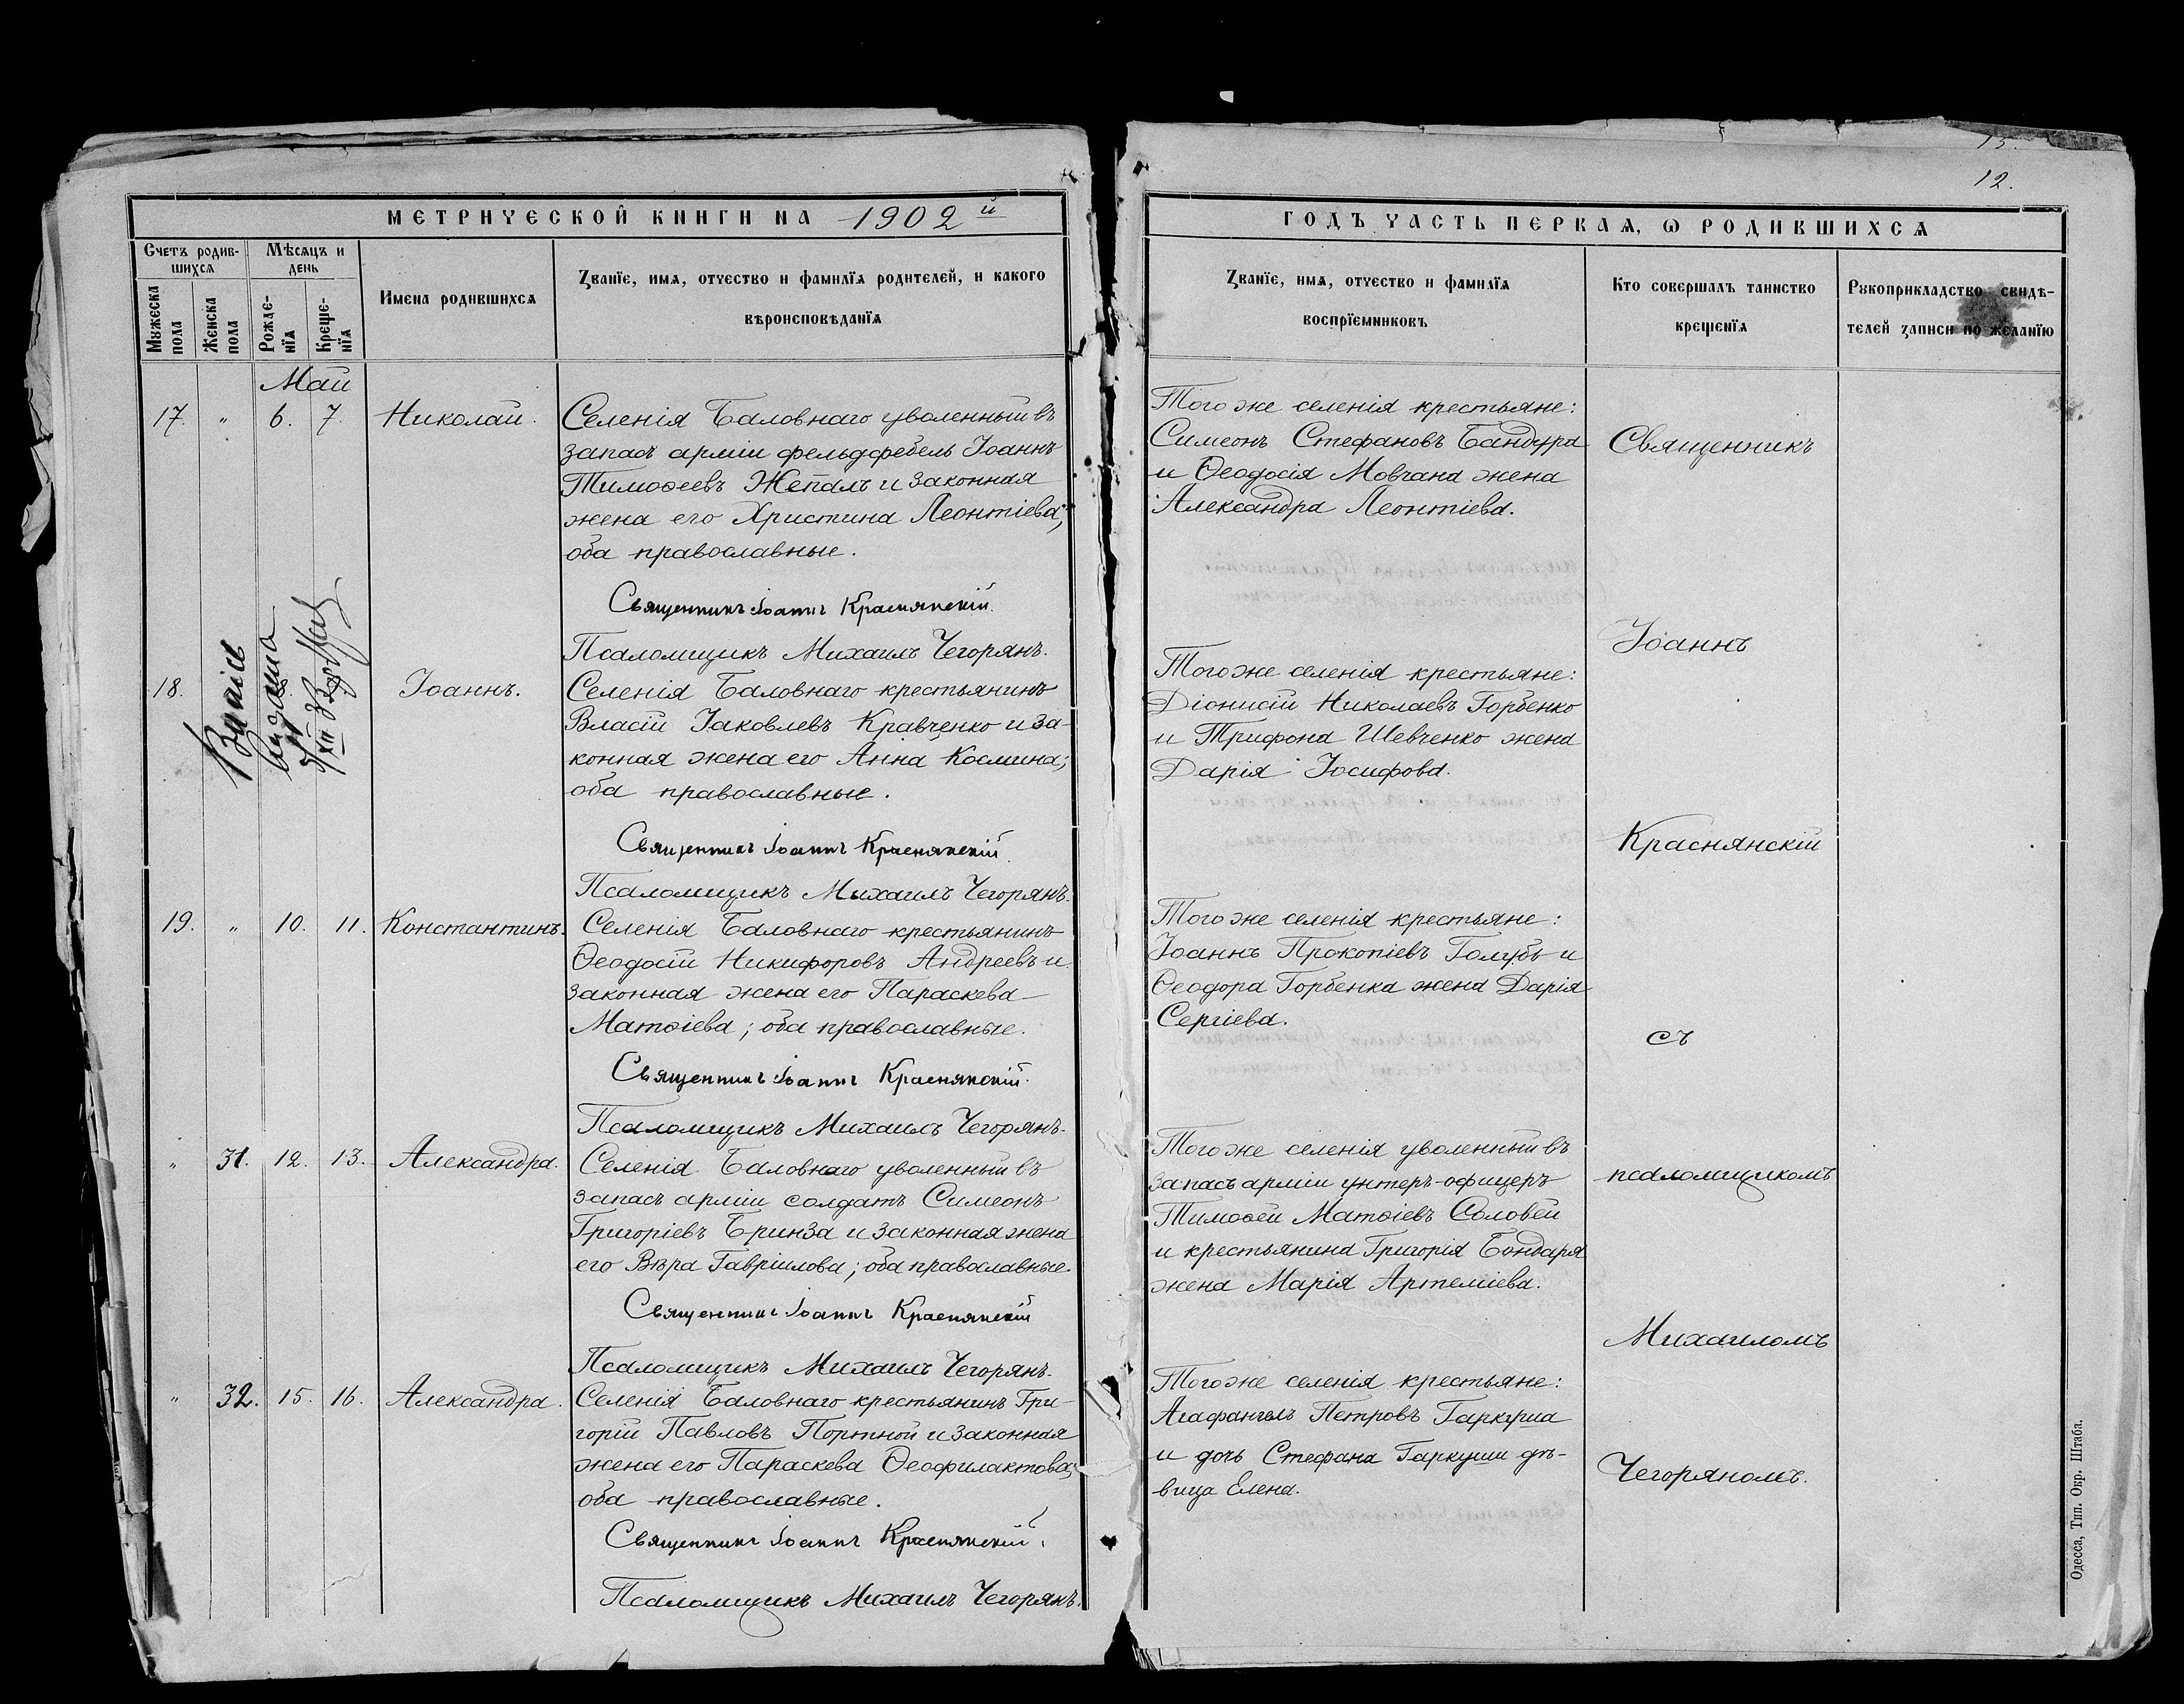 МЕТРИЧЕСКОЙ КНИГИ НА 1902 й
Счетъ родив-
шихся
Мѣсяцъ и
день
Мужеска
пола
Женска
пола
Рожде-
нїя
Креще-
нїя
Имена родившихся
Званїе, имя, отчество и фамилїя родителей, и какого
вѣроисповѣданїя
Май
17. " 6. 7. Николай.
Селенія Баловнаго уволенный въ
запасъ арміи фельдфебель Іоаннъ
Тимоѳеевъ Жепалъ и законная
жена его Христина Леонтіева;
оба православные.
Священникъ Іоаннъ Краснянскій.
Псаломщикъ Михаилъ Чегорянъ.
18. Іоаннъ.
Селенія Баловнаго крестьянинъ
Власій Іаковлевъ Кравченко и за-
конная жена его Анна Космина;
оба православные.
Священникъ Іоаннъ Краснянскій.
Псаломщикъ Михаилъ Чегорянъ.
19. " 10. 11. Константинъ.
Селенія Баловнаго крестьянинъ
Ѳеодосій Никифоровъ Андреевъ и
законная жена его Параскева
Матѳіева; оба православные.
Священникъ Іоаннъ Краснянскій.
Псаломщикъ Михаилъ Чегорянъ.
" 31. 12. 13. Александра.
Селенія Баловнаго уволенный въ
запасъ арміи солдатъ Симеонъ
Григоріевъ Бринза и законная жена
его Вѣра Гавріилова; оба православные.
Священникъ Іоаннъ Краснянскій
Псаломщикъ Михаилъ Чегорянъ.
" 32. 15. 16. Александра.
Селенія Баловнаго крестьянинъ Гри-
горій Павловъ Портной и законная
жена его Параскева Ѳеофилактова;
оба православные.
Священникъ Іоаннъ Краснянскій.
Псаломщикъ Михаилъ Чегорянъ.
15.
12.
ГОДЪ ЧАСТЬ ПЕРВАЯ, Ѡ РОДИВШИХСЯ
Званїе, имя, отчество и фамилїя
воспрїемниковъ
Кто совершалъ таинство
крещенїя
Рукоприкладство свидѣ-
телей записи по желанїю
Того же селенія крестьяне:
Симеонъ Стефановъ Бандура
и Ѳеодосія Мовчана жена
Александра Леонтіева.
Того же селенія крестьяне:
Діонисій Николаевъ Горбенко
и Трифона Шевченко жена
Дарія Іосифова.
Того же селенія крестьяне:
Іоаннъ Прокопіевъ Голубъ и
Ѳеодора Горбенка жена Дарія
Сергіева.
Того же селенія уволенный въ
запасъ арміи унтеръ-офицеръ
Тимоѳей Матѳіевъ Соловей
и крестьянина Григорія Бондаря
жена Марія Артеміева.
Того же селенія крестьяне:
Агафангелъ Петровъ Гаркуша
и дочь Стефана Гаркуши дѣ-
вица Елена.
Священникъ
Іоаннъ
Краснянскій
съ
псаломщикомъ
Михаиломъ
Чегоряномъ.
Одесса, Тип. Окр. Штаба.